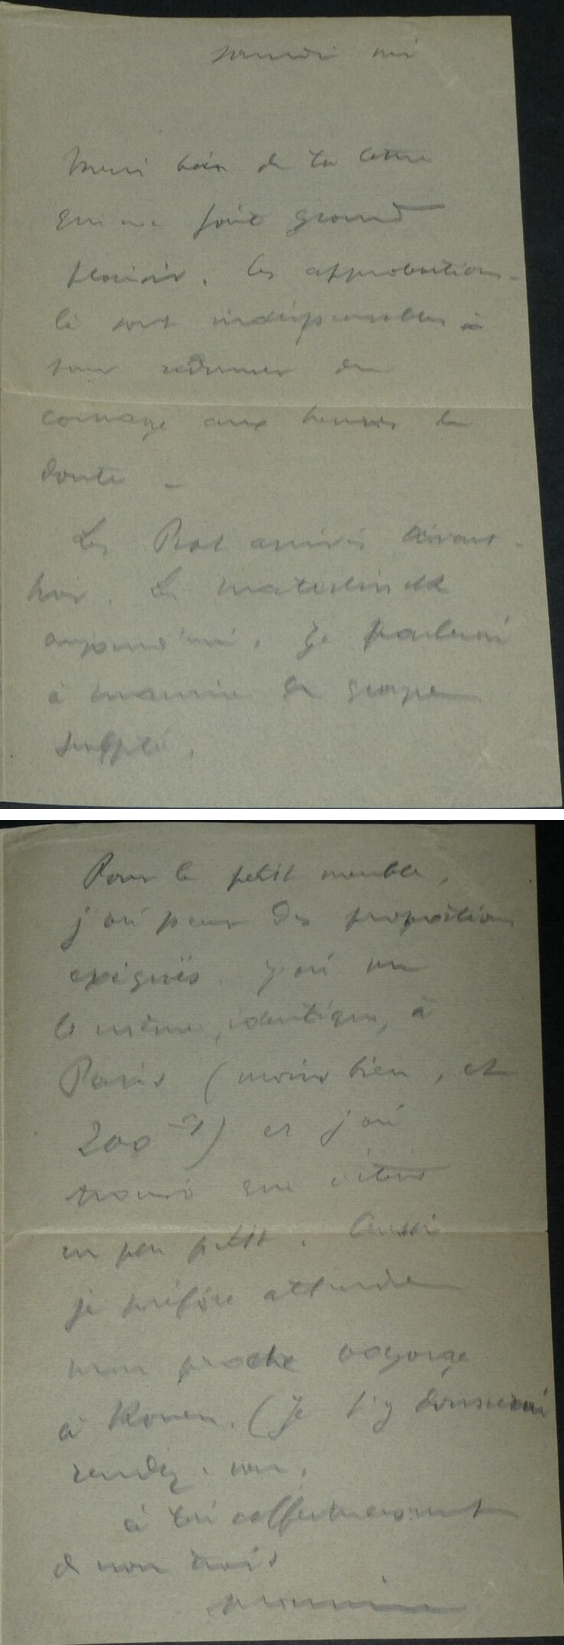 samedi
Merci bien de ta lettre
qui me fait grand
plaisir. Ces approbations-
là sont indispensables à
pour redonner du
courage aux heures de
doute -
Les Prat arrivés avant-
hier. Le Maeterlinck
aujourd'hui. Je parlerai
à Maurin de groupe
Pour le petit meuble,
j'ai peur des proportions
exiguës. J'ai vu
le même, identique, à
Paris (moins bien, et
200 f) et j'ai
trouvé que c'était
un peu petit. Aussi
je préfère attendre
mon proche voyage
à Rouen. (Je t'y donnerai
rendez-vous.
à toi affectueusement
de nous trois